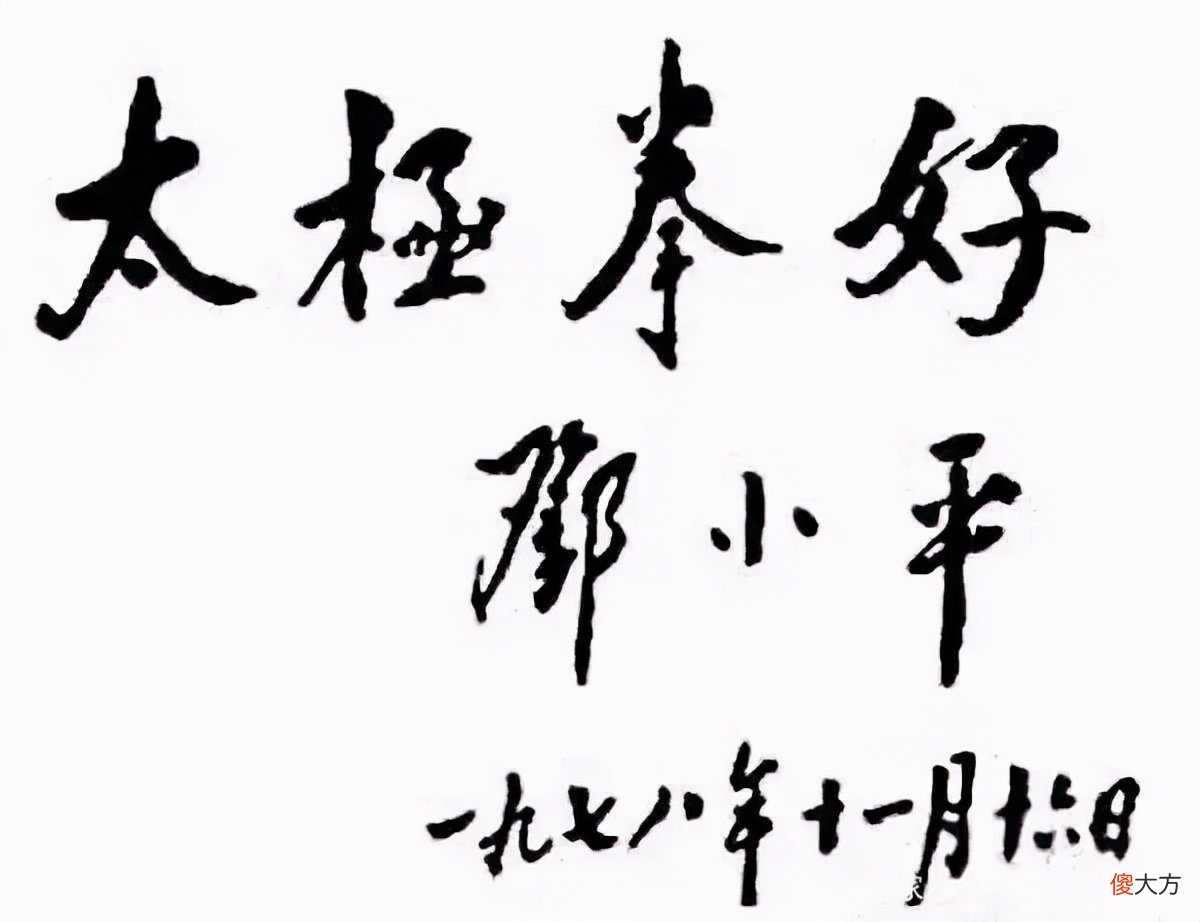 太極拳好
鄧小平
一九七八年十一月十六日
傻大方